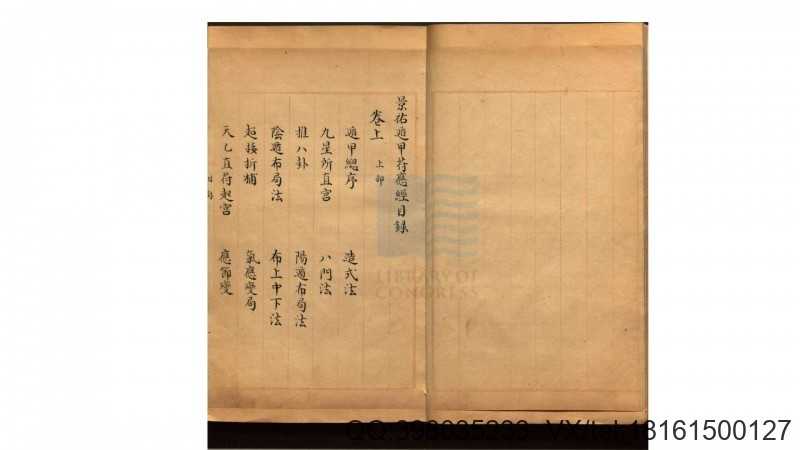 景祐遁甲符應經目錄
卷上 上部
遁甲總序 造式法
九星所直宮 八門法
推八卦 陽遁布局法
陰遁布局法 布上中下法
超接折補 氣應變局
天乙直符起宮 應節變
LIBRARY OF
CONGRESS
VX/tel:18161500127